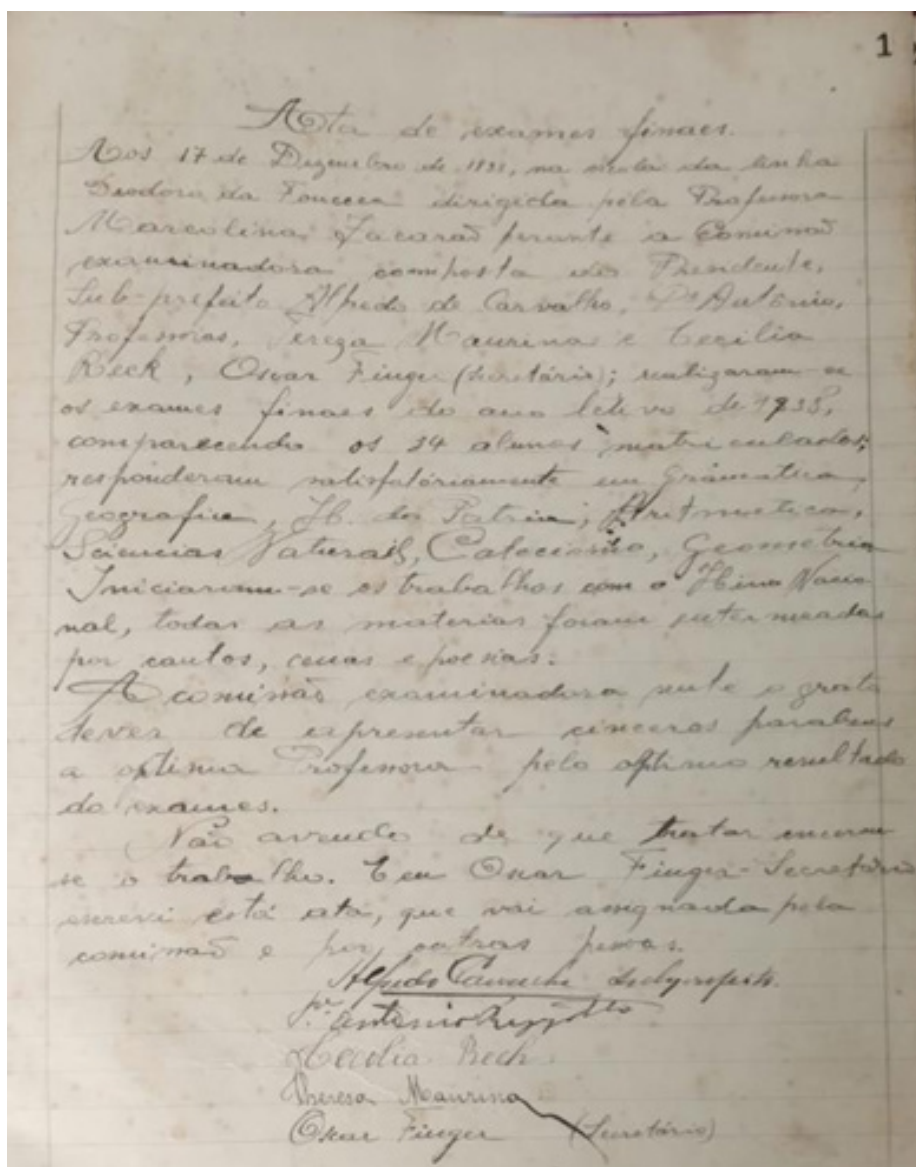 1
Acta de exames finaes.
Aos 17 de Dezembro de 1938, na escola da linha
Deodoro da Fonceca dirigida pela Professora
Marcolina Jacarão perante a Comissão
examinadora composta do Presidente,
Sub-prefeito Alfredo de Carvalho, Pe Antônio,
Professoras, Tereza Maurina e Cecilia
Beck, Oscar Finger (Secretário); realizaram se
os exames finaes do ano letivo de 1938,
comparecendo os 34 alunos matriculados;
responderam satisfatóriamente em Gramatica,
Geografia, H. da Patria, Aritmetica,
Sciencias Naturais, Catecismo, Geometria
Iniciaram-se os trabalhos com o Hino Nacio
nal, todas as materias foram entermeadas
por cantos, cenas e poesias.
A comissão examinadora sente o grato
dever de apresentar cinceros parabens
a optima Professora pelo optimo resultado
do exames.
Não avendo de que tratar encerou
se o trabalho. E eu Oscar Finger-Secretário
escrevi está ata, que vai assignada pela
comissão e por outras pessoas.
Alfredo
Pe. Antonio
Cecilia Beck
Theresa Maurina
Oscar Finger (Secretário)